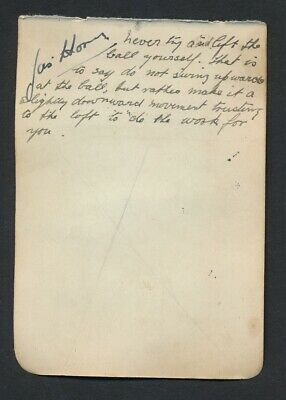 Jas Horn never try and left the
ball yourself. That is
to say do not swing upwards
at the ball, but rather make it a
slightly downward movement trusting
to the loft to "do the work for
you.